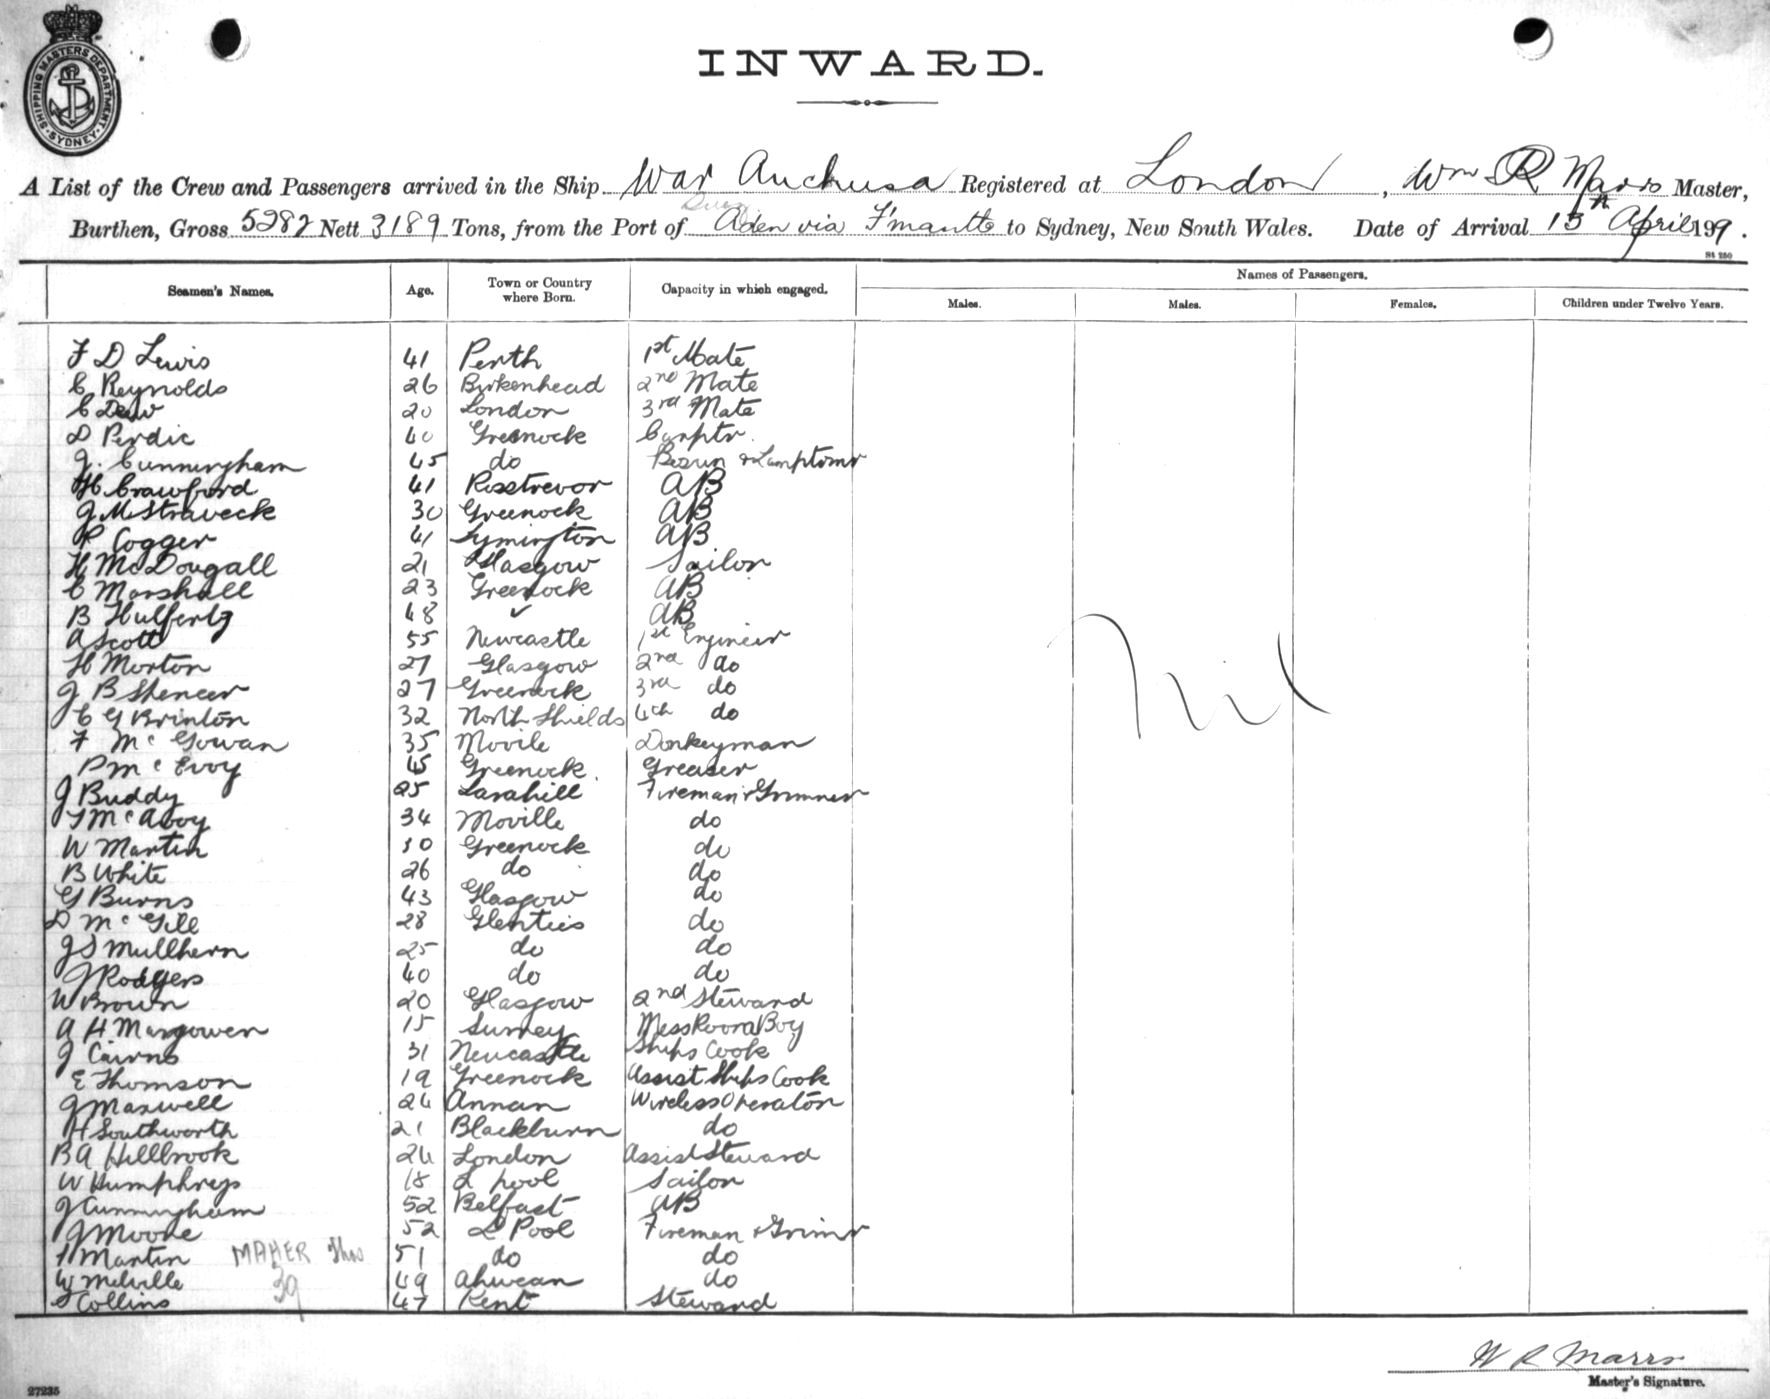 SHIPPING MASTERS DEPARTMENT · SYDNEY ·
INWARD.
A List of the Crew and Passengers arrived in the Ship War Anchusa Registered at London, Wm R Marrs Master,
Burthen, Gross 5282 Nett 3189 Tons, from the Port of Aden via F'mantle to Sydney, New South Wales. Date of Arrival 15th April 199.
Seamen's Names. Age. Town or Country where Born. Capacity in which engaged. Names of Passengers.
Males. Males. Females. Children under Twelve Years.
F D Lewis 41 Perth 1st Mate
C Reynolds 26 Birkenhead 2nd Mate
C Dew 20 London 3rd Mate
D Perdie 40 Greenock Carptr.
J. Cunningham 45 do Bosun & Lamptrmr
H Crawford 41 Rosstrevor AB
J McStraveck 30 Greenock AB
P Cogger 41 Lymington AB
H McDougall 21 Glasgow Sailor
C Marshall 23 Greenock AB
B Hulfertz 48 ✓ AB
A Scott 55 Newcastle 1st Engineer
H Morton 27 Glasgow 2nd do
J B Spencer 27 Greenock 3rd do
C G Brinton 32 North Shields 4th do
Nil
F McGowan 35 Movile Donkeyman
P McEvoy 45 Greenock Greaser
J Buddy 25 Larahill Fireman & Trimmer
McAvoy 34 Moville do
W Martin 30 Greenock do
B White 26 do do
G Burns 43 Glasgow do
D McGill 28 Glenties do
J S Mullhern 25 do do
J Rodgers 40 do do
W Brown 20 Glasgow 2nd Steward
A H Margowen 15 Surrey Mess Room Boy
J Cairns 31 Newcastle Ships Cook
E Thomson 19 Greenock Assist Ships Cook
J Maxwell 24 Annan Wireless Operator
H Southworth 21 Blackburn do
B A Hillbrook 24 London Assist Steward
W Humphreys 18 L pool Sailor
J Cunningham 52 Belfast AB
J Moore 52 L Pool Fireman & Trimr
Martin MAHER Thos 51 do do
W Melville 39 49 do
Collins 47 Kent Steward
W R Marrs
Master's Signature.
27235